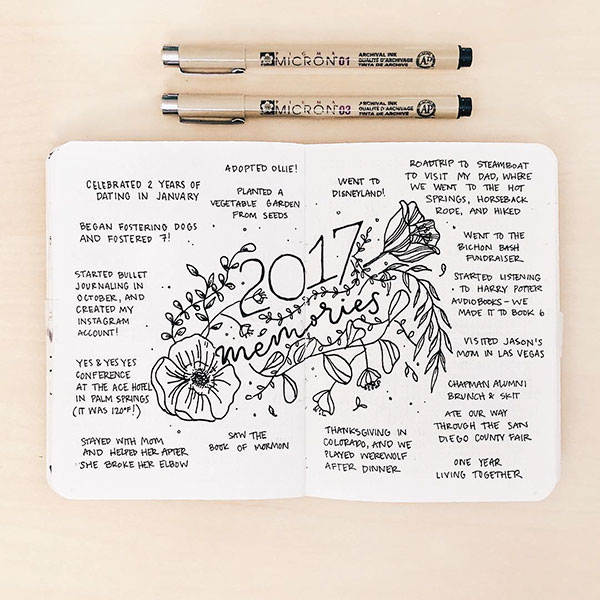 SIGMA
MICRON 01
ARCHIVAL INK
QUALITÉ D'ARCHIVAGE
TINTA DE ARCHIVE
AP
MICRON 03
ARCHIVAL INK
QUALITÉ D'ARCHIVAGE
TINTA DE ARCHIVE
AP
CELEBRATED 2 YEARS OF
DATING IN JANUARY
BEGAN FOSTERING DOGS
AND FOSTERED 7!
STARTED BULLET
JOURNALING IN
OCTOBER, AND
CREATED MY
INSTAGRAM
ACCOUNT!
YES & YES YES
CONFERENCE
AT THE ACE HOTEL
IN PALM SPRINGS
(IT WAS 120°F!)
STAYED WITH MOM
AND HELPED HER AFTER
SHE BROKE HER ELBOW
ADOPTED OLLIE!
PLANTED A
VEGETABLE GARDEN
FROM SEEDS
2017
memories
SAW THE
BOOK OF MORMON
WENT TO
DISNEYLAND!
THANKSGIVING IN
COLORADO, AND WE
PLAYED WEREWOLF
AFTER DINNER
ROADTRIP TO STEAMBOAT
TO VISIT MY DAD, WHERE
WE WENT TO THE HOT
SPRINGS, HORSEBACK
RODE, AND HIKED
WENT TO THE
BICHON BASH
FUNDRAISER
STARTED LISTENING
TO HARRY POTTER
AUDIOBOOKS – WE
MADE IT TO BOOK 6
VISITED JASON'S
MOM IN LAS VEGAS
CHAPMAN ALUMNI
BRUNCH & SKIT
ATE OUR WAY
THROUGH THE SAN
DIEGO COUNTY FAIR
ONE YEAR
LIVING TOGETHER